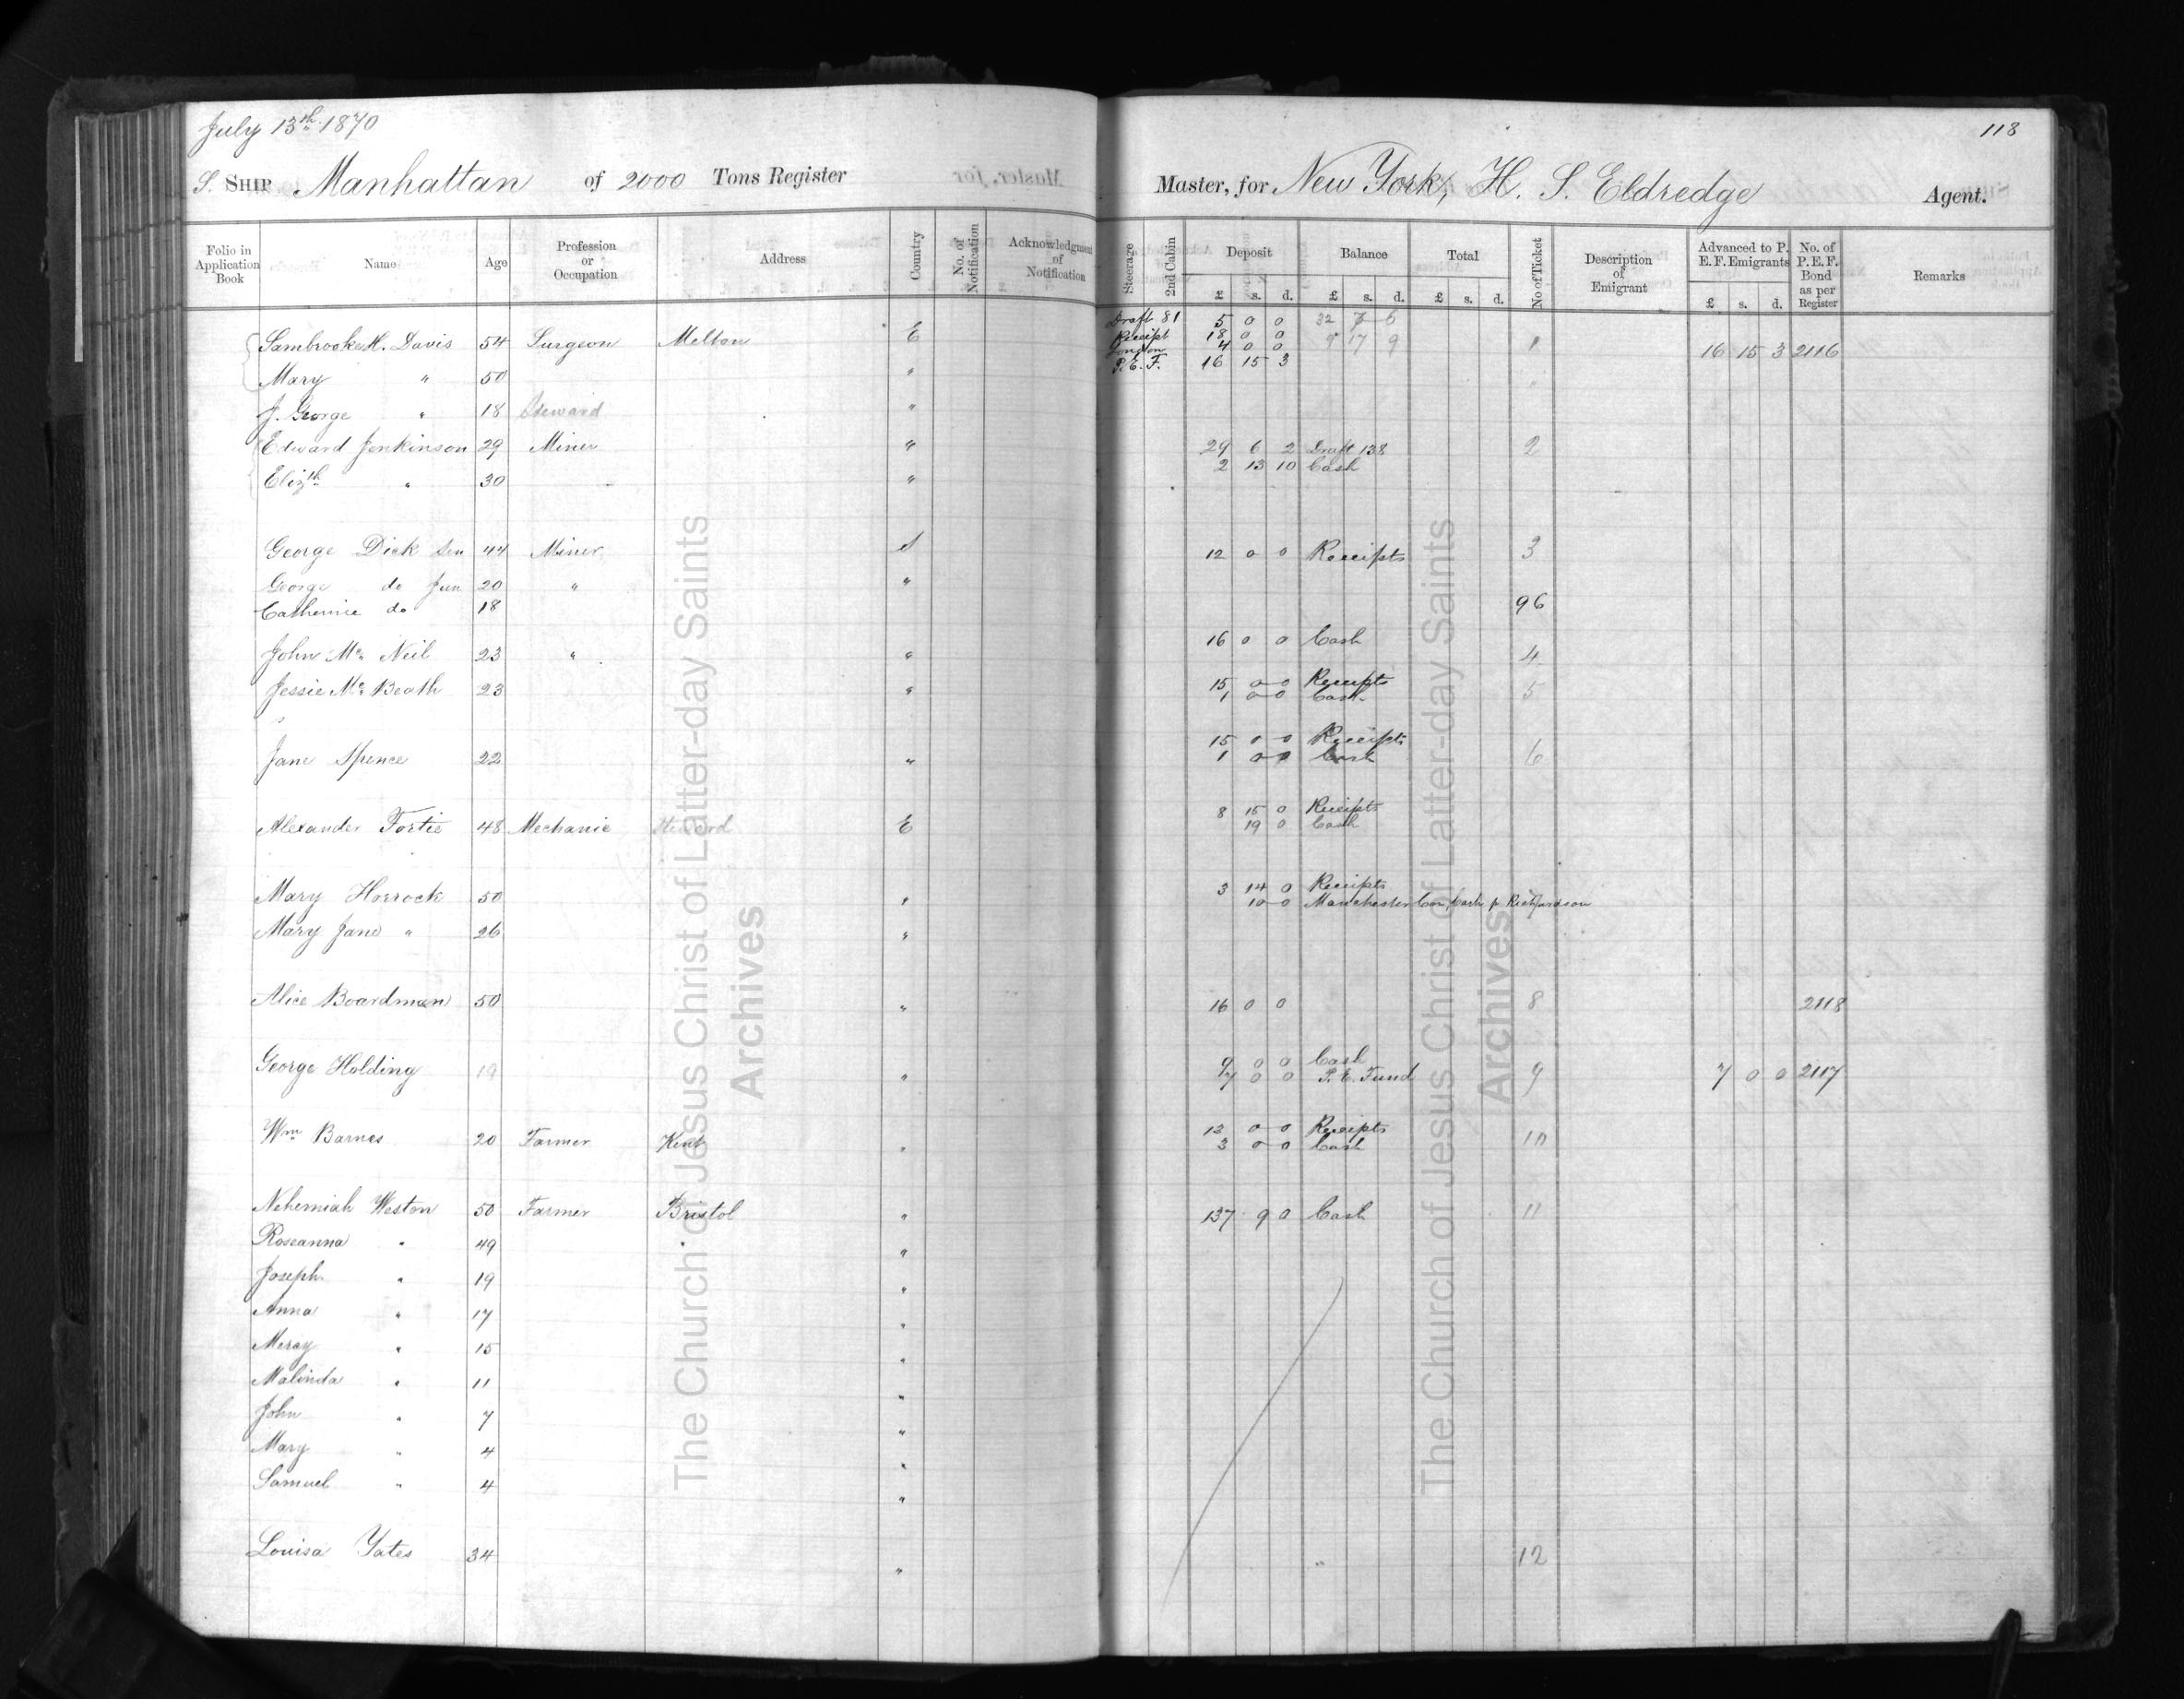 July 13th 1870
118
S. SHIP Manhattan of 2000 Tons Register Master, for New York, H. S. Eldredge Agent.
Folio in Application Book Name Age Profession or Occupation Address Country No. of Notification Acknowledgment of Notification Steerage 2nd Cabin Deposit £ s. d. Balance £ s. d. Total £ s. d. No of Ticket Description of Emigrant Advanced to P. E. F. Emigrants £ s. d. No. of P. E. F. Bond as per Register Remarks
Draft 81 5 0 0 32 7 6
Sambrooke H. Davis 54 Surgeon Melton E Receipt 18 0 0 9 17 9 1 16 15 3 2116
London 4 0 0
Mary " 50 " P. E. F. 16 15 3 "
J. George " 18 Steward "
Edward Jenkinson 29 Miner " 29 6 2 Draft 138 2
2 13 10 Cash
Elizth " 30 "
George Dick Sen 44 Miner S 12 0 0 Receipts 3
George do Jun 20 " "
Catherine do 18 96
John Mc Neil 23 " " 16 0 0 Cash 4
Jessie Mc Beath 23 " 15 0 0 Receipts 5
1 0 0 Cash
Jane Spence 22 " 15 0 0 Receipts 6
1 0 0 Cash
Alexander Fortie 48 Mechanic E 8 15 0 Receipts
19 0 Cash
Mary Horrock 50 " 3 14 0 Receipts
10 0 Manchester Con, Cash p Richardson
Mary Jane " 26 "
Alice Boardman 50 " 16 0 0 8 2118
George Holding 19 " 9 0 0 Cash 9 7 0 0 2117
7 0 0 P. E. Fund
Wm Barnes 20 Farmer Kent " 13 0 0 Receipts 10
3 0 0 Cash
Nehemiah Weston 50 Farmer Bristol " 137 9 0 Cash 11
Roseanna " 49 "
Joseph " 19 "
Anna " 17 "
Meray " 15 "
Malinda " 11 "
John " 7 "
Mary " 4 "
Samuel " 4 "
Louisa Yates 34 " " 12
The Church of Jesus Christ of Latter-day Saints
Archives
The Church of Jesus Christ of Latter-day Saints
Archives